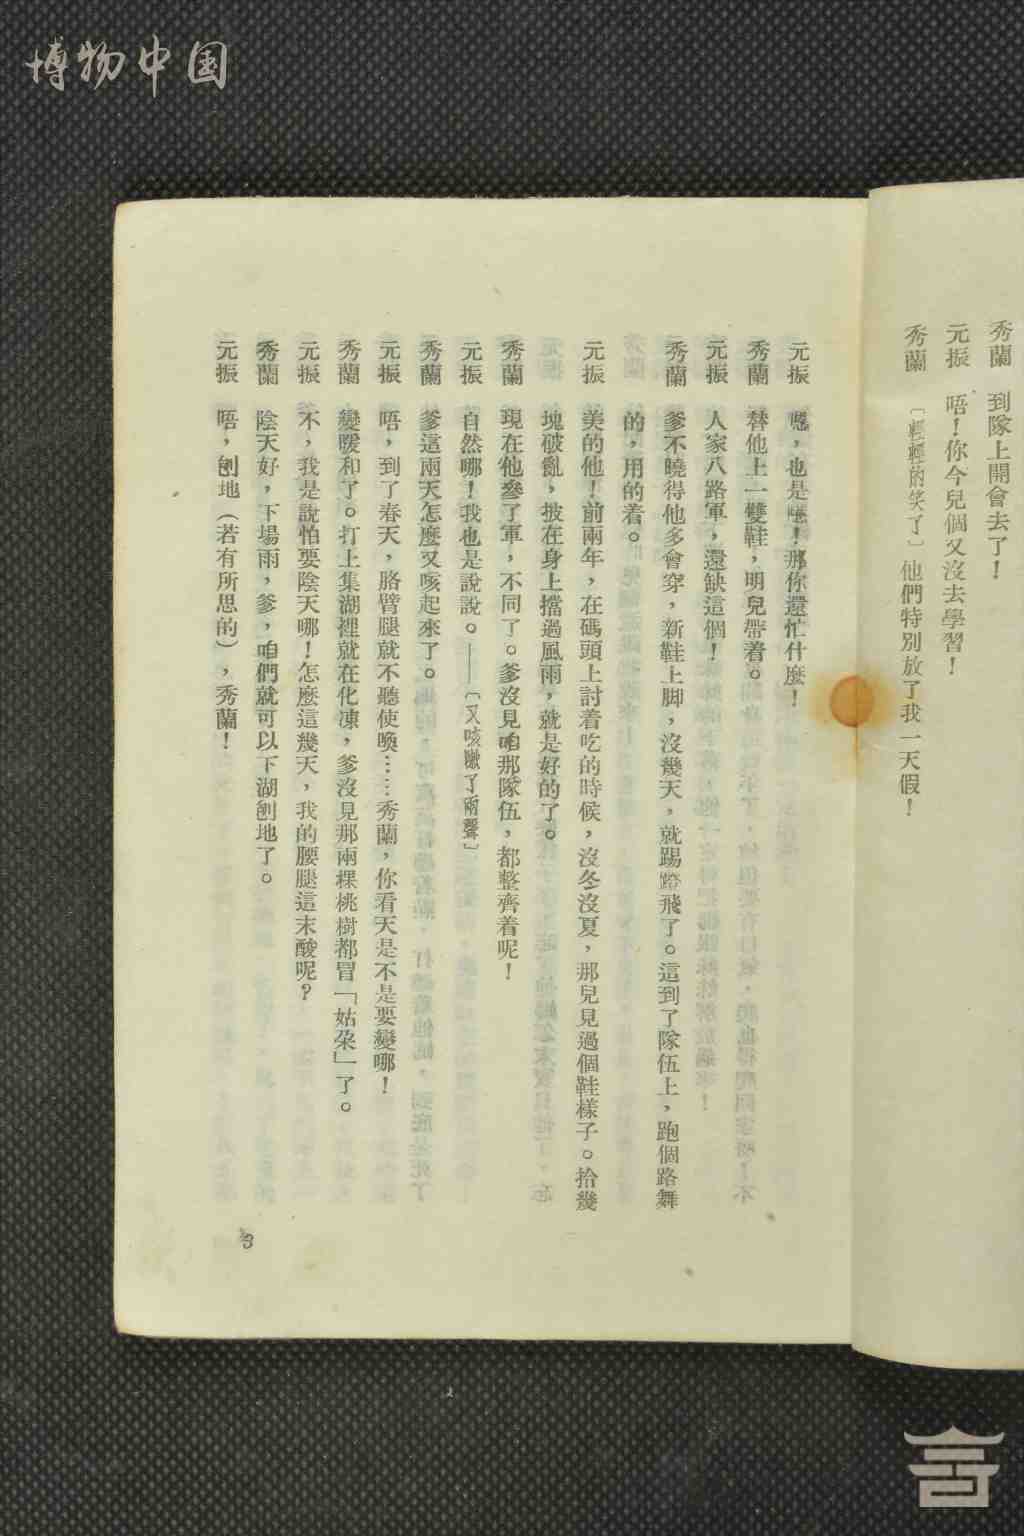 博物中国
秀蘭 到隊上開會去了！
元振 唔！你今兒個又沒去學習！
秀蘭 〔輕輕的笑了〕他們特別放了我一天假！
元振 嗯，也是嗯！那你還忙什麼！
秀蘭 替他上一雙鞋，明兒帶着。
元振 人家八路軍，還缺這個！
秀蘭 爹不曉得他多會穿，新鞋上脚，沒幾天，就踢蹬飛了。這到了隊伍上，跑個路舞
的，用的着。
元振 美的他！前兩年，在碼頭上討着吃的時候，沒冬沒夏，那兒見過個鞋樣子。拾幾
塊破亂，披在身上擋過風雨，就是好的了。
秀蘭 現在他參了軍，不同了。爹沒見咱那隊伍，都整齊着呢！
元振 自然哪！我也是說說。——〔又咳嗽了兩聲〕
秀蘭 爹這兩天怎麼又咳起來了。
元振 唔，到了春天，胳臂腿就不聽使喚……秀蘭，你看天是不是要變哪！
秀蘭 變暖和了。打上集湖裡就在化凍，爹沒見那兩棵桃樹都冒「姑朶」了。
元振 不，我是說怕要陰天哪！怎麼這幾天，我的腰腿這末酸呢？
秀蘭 陰天好，下場雨，爹，咱們就可以下湖刨地了。
元振 唔，刨地（若有所思的），秀蘭！
3